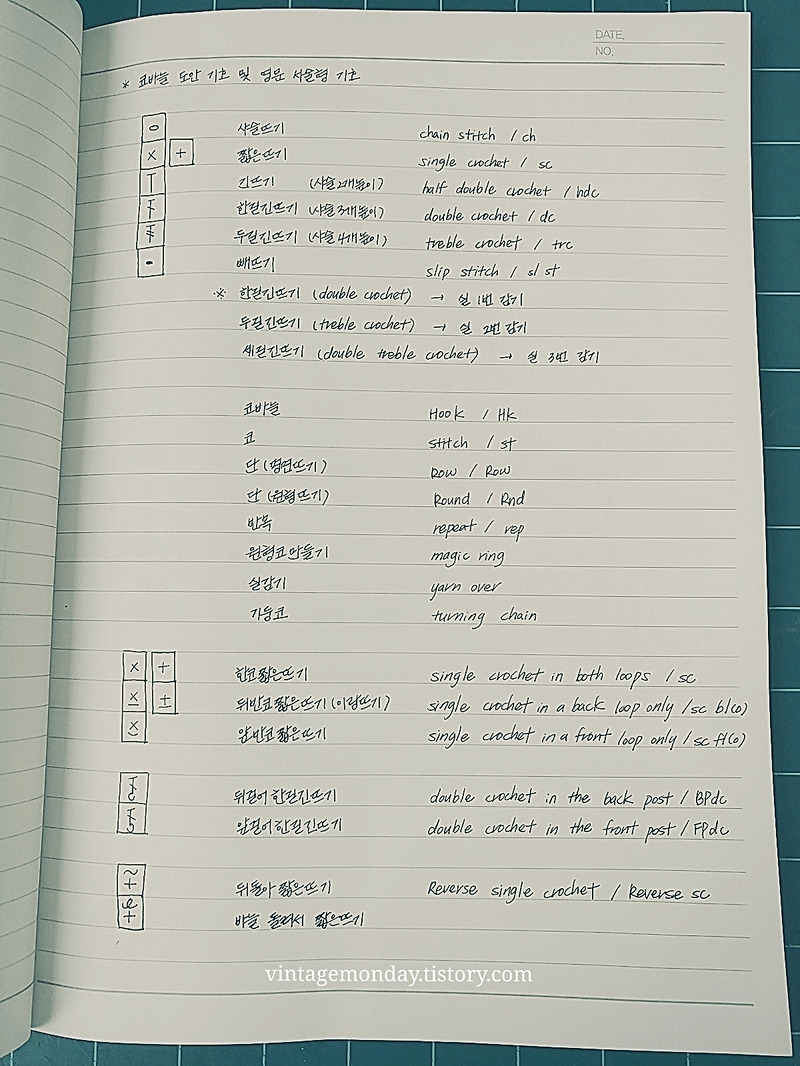 DATE.
NO.
* 코바늘 도안 기초 및 영문 서술형 기초
사슬뜨기 chain stitch / ch
짧은뜨기 single crochet / sc
긴뜨기 (사슬2개높이) half double crochet / hdc
한길긴뜨기 (사슬3개높이) double crochet / dc
두길긴뜨기 (사슬4개높이) treble crochet / trc
빼뜨기 slip stitch / sl st
※ 한길긴뜨기 (double crochet) → 실 1번 감기
두길긴뜨기 (treble crochet) → 실 2번 감기
세길긴뜨기 (double treble crochet) → 실 3번 감기
코바늘 Hook / Hk
코 stitch / st
단 (평면뜨기) Row / Row
단 (원형뜨기) Round / Rnd
반복 repeat / rep
원형코 만들기 magic ring
실감기 yarn over
기둥코 turning chain
한코 짧은뜨기 single crochet in both loops / sc
뒤반코 짧은뜨기 (이랑뜨기) single crochet in a back loop only / sc bl(o)
앞반코 짧은뜨기 single crochet in a front loop only / sc fl(o)
뒤걸어 한길긴뜨기 double crochet in the back post / BPdc
앞걸어 한길긴뜨기 double crochet in the front post / FPdc
뒤돌아 짧은뜨기 Reverse single crochet / Reverse sc
바늘 돌려서 짧은뜨기
vintagemonday.tistory.com